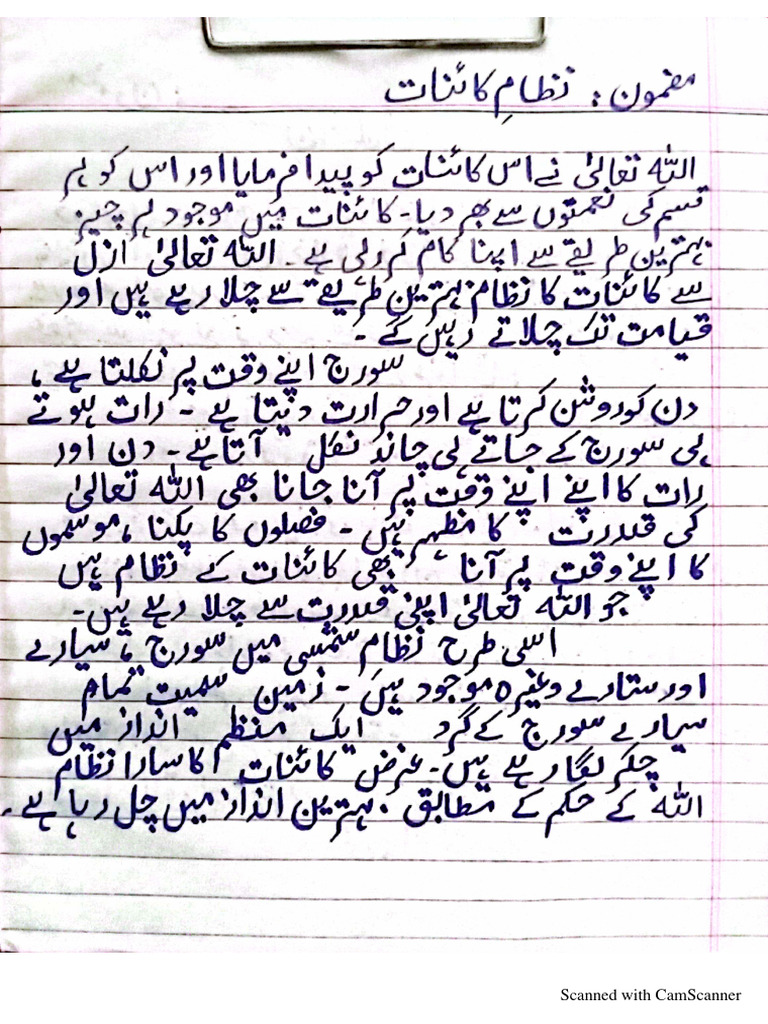 مضمون: نظامِ کائنات
اللہ تعالیٰ نے اس کائنات کو پیدا فرمایا اور اس کو ہر
قسم کی نعمتوں سے بھر دیا۔ کائنات میں موجود ہر چیز
بہترین طریقے سے اپنا کام کر رہی ہے۔ اللہ تعالیٰ ازل
سے کائنات کا نظام بہترین طریقے سے چلا رہے ہیں اور
قیامت تک چلاتے رہیں گے۔
سورج اپنے وقت پر نکلتا ہے،
دن کو روشن کرتا ہے اور حرارت دیتا ہے۔ رات ہوتے
ہی سورج کے جاتے ہی چاند نکل آتا ہے۔ دن اور
رات کا اپنے اپنے وقت پر آنا جانا بھی اللہ تعالیٰ
کی قدرت کا مظہر ہیں۔ فصلوں کا پکنا، موسموں
کا اپنے وقت پر آنا بھی کائنات کے نظام ہیں
جو اللہ تعالیٰ اپنی قدرت سے چلا رہے ہیں۔
اسی طرح نظام شمسی میں سورج، سیارے
اور ستارے وغیرہ موجود ہیں۔ زمین سمیت تمام
سیارے سورج کے گرد ایک منظم انداز میں
چکر لگا رہے ہیں۔ غرض کائنات کا سارا نظام
اللہ کے حکم کے مطابق بہترین انداز میں چل رہا ہے۔
Scanned with CamScanner